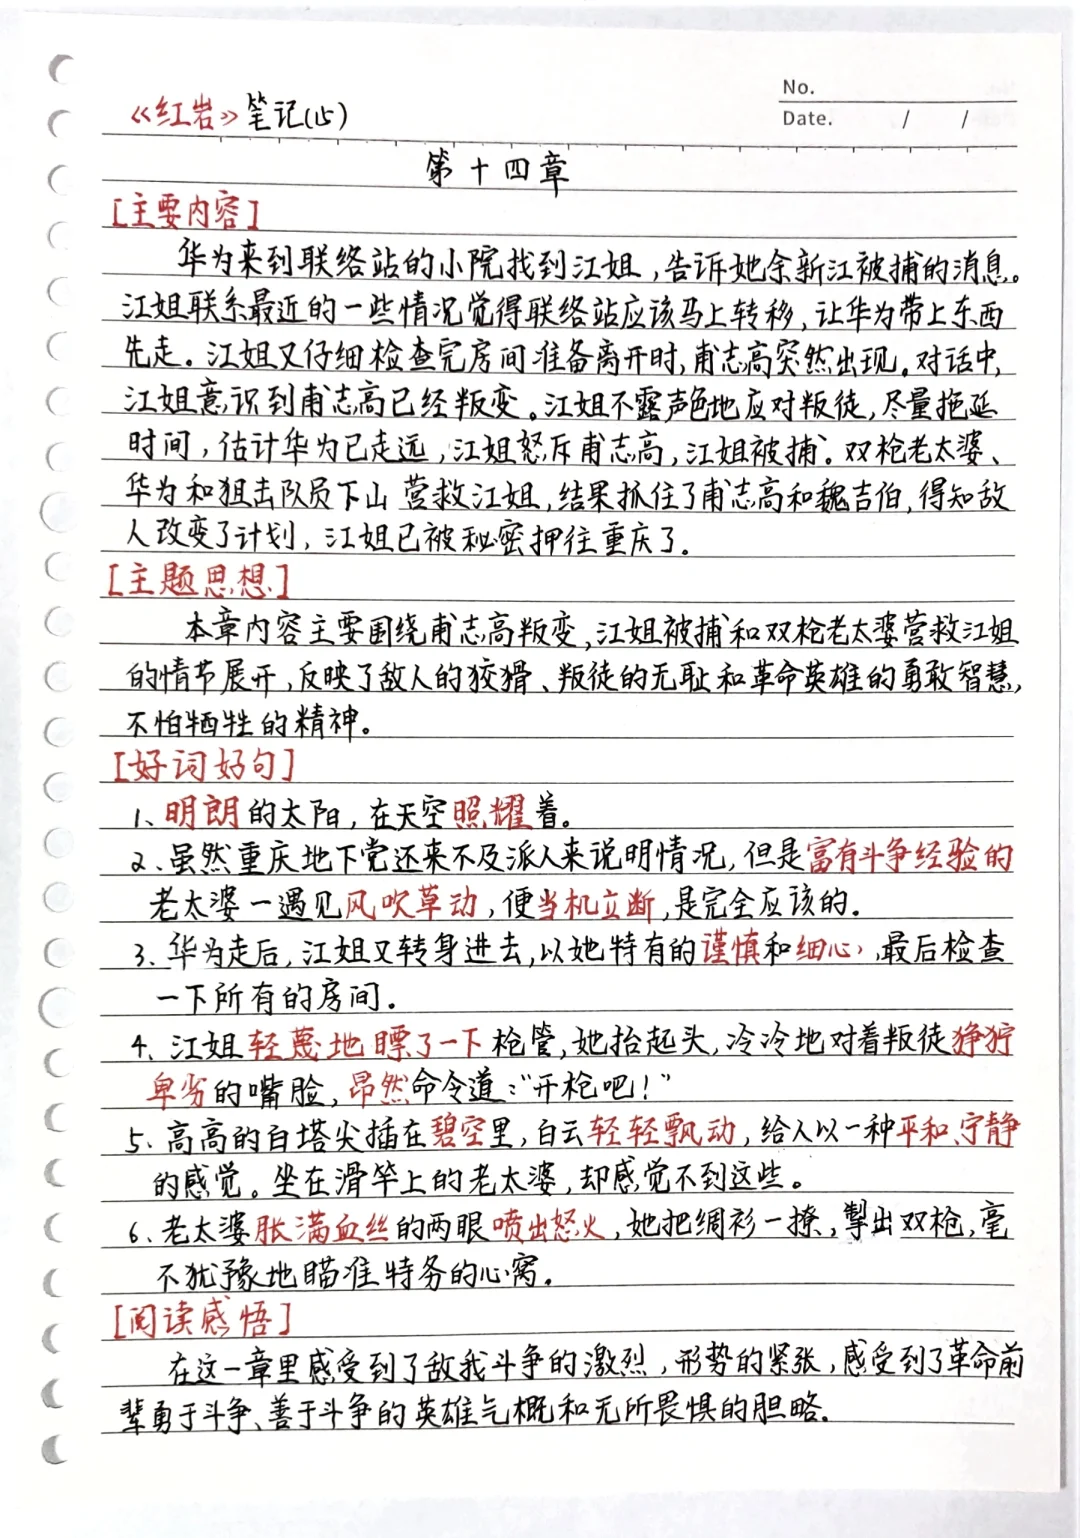 No.
Date. / /
《红岩》笔记(15)
第十四章
[主要内容]
华为来到联络站的小院找到江姐,告诉她余新江被捕的消息。
江姐联系最近的一些情况觉得联络站应该马上转移,让华为带上东西
先走。江姐又仔细检查完房间准备离开时,甫志高突然出现。对话中,
江姐意识到甫志高已经叛变。江姐不露声色地应对叛徒,尽量拖延
时间,估计华为已走远,江姐怒斥甫志高,江姐被捕。双枪老太婆、
华为和狙击队员下山营救江姐,结果抓住了甫志高和魏吉伯,得知敌
人改变了计划,江姐已被秘密押往重庆了。
[主题思想]
本章内容主要围绕甫志高叛变,江姐被捕和双枪老太婆营救江姐
的情节展开,反映了敌人的狡猾、叛徒的无耻和革命英雄的勇敢智慧,
不怕牺牲的精神。
[好词好句]
1、明朗的太阳,在天空照耀着。
2、虽然重庆地下党还来不及派人来说明情况,但是富有斗争经验的
老太婆一遇见风吹草动,便当机立断,是完全应该的。
3、华为走后,江姐又转身进去,以她特有的谨慎和细心,最后检查
一下所有的房间。
4、江姐轻蔑地瞟了一下枪管,她抬起头,冷冷地对着叛徒狰狞
卑劣的嘴脸,昂然命令道:"开枪吧!"
5、高高的白塔尖插在碧空里,白云轻轻飘动,给人以一种平和、宁静
的感觉。坐在滑竿上的老太婆,却感觉不到这些。
6、老太婆胀满血丝的两眼喷出怒火,她把绸衫一撩,掣出双枪,毫
不犹豫地瞄准特务的心窝。
[阅读感悟]
在这一章里感受到了敌我斗争的激烈,形势的紧张,感受到了革命前
辈勇于斗争、善于斗争的英雄气概和无所畏惧的胆略。